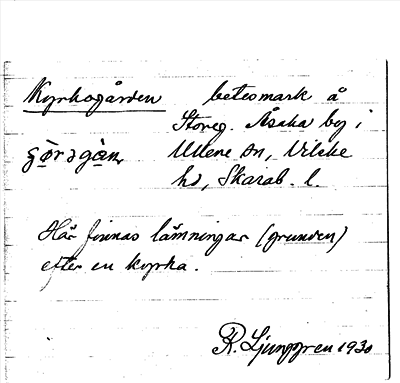 Kyrkogården betesmark å
Storeg. Åsaka by i
Ullene sn, Vilske
hd, Skarab. l.
Här finnas lämningar (grunden)
efter en kyrka.
R. Ljunggren 1930